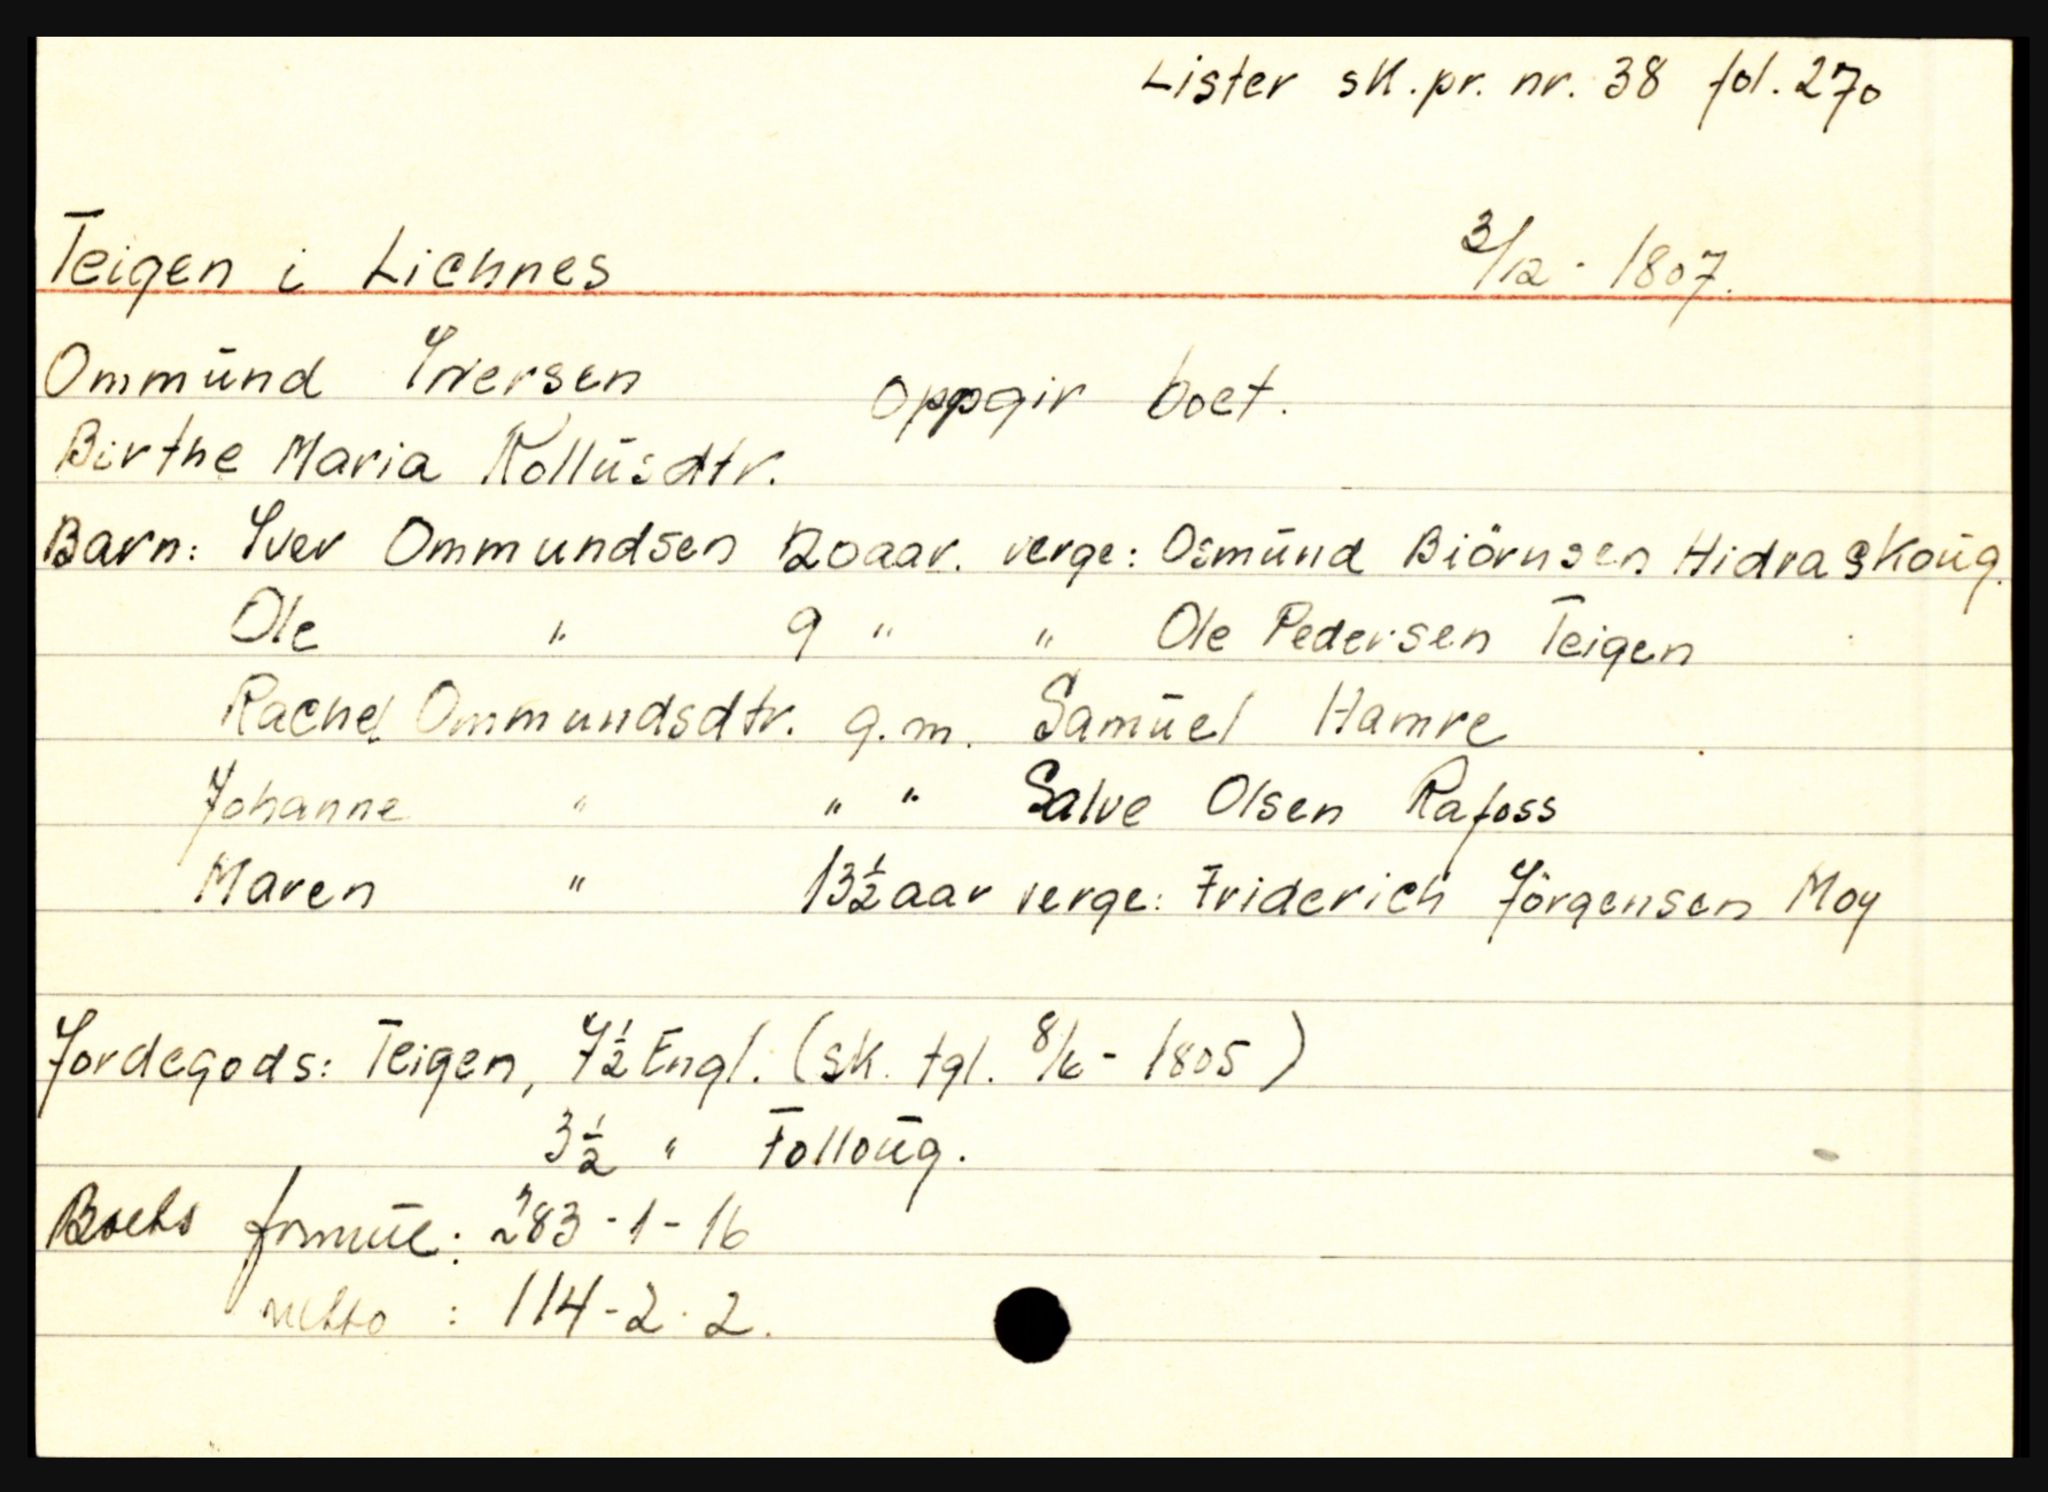 Lister sk.pr. nr. 38 fol. 270
Teigen i Lichnes 3/12 - 1807.
Ommünd Iversen oppgir boet.
Birthe Maria Rollüsdtr.
Barn: Iver Ommundsen 20 aar. verge: Osmünd Biörnsen Hidraskoüg.
Ole " 9 " " Ole Pedersen Teigen
Rachel Ommundsdtr. g.m. Samüel Hamre
Johanne " " " Salve Olsen Rafoss
Maren " 13½ aar verge: Friderich Jörgensen Moy
Jordegods: Teigen, 7½ Engl. (sk. tgl. 8/6 - 1805)
3½ " Folloüg.
Boets formüe: 283 - 1 - 16
netto : 114 - 2 - 2.